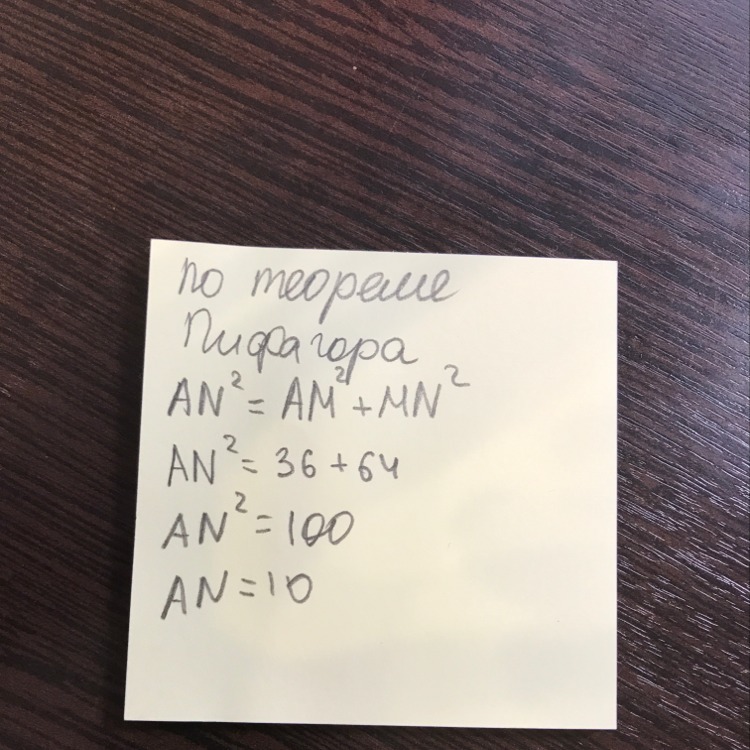 по теореме
Пифагора
AN² = AM² + MN²
AN² = 36 + 64
AN² = 100
AN = 10